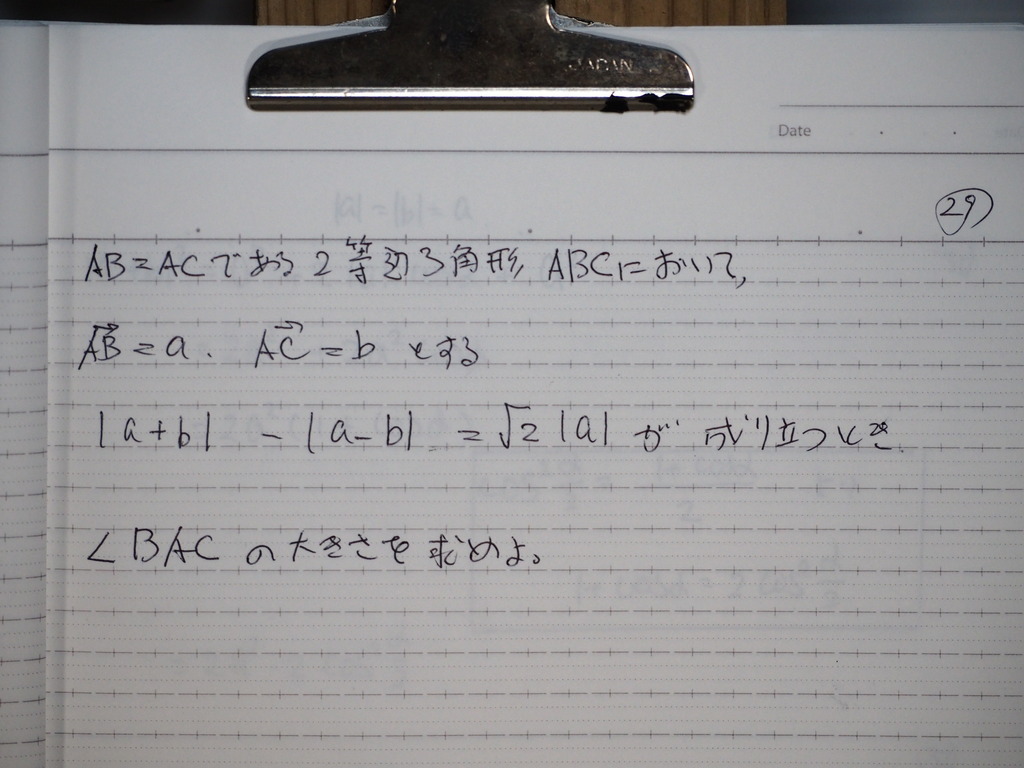 JAPAN
Date
29
AB=ACである2等辺3角形ABCにおいて,
→AB = a. →AC = b とする
|a+b| - |a-b| = √2 |a| が 成り立つとき.
∠BAC の大きさを求めよ。